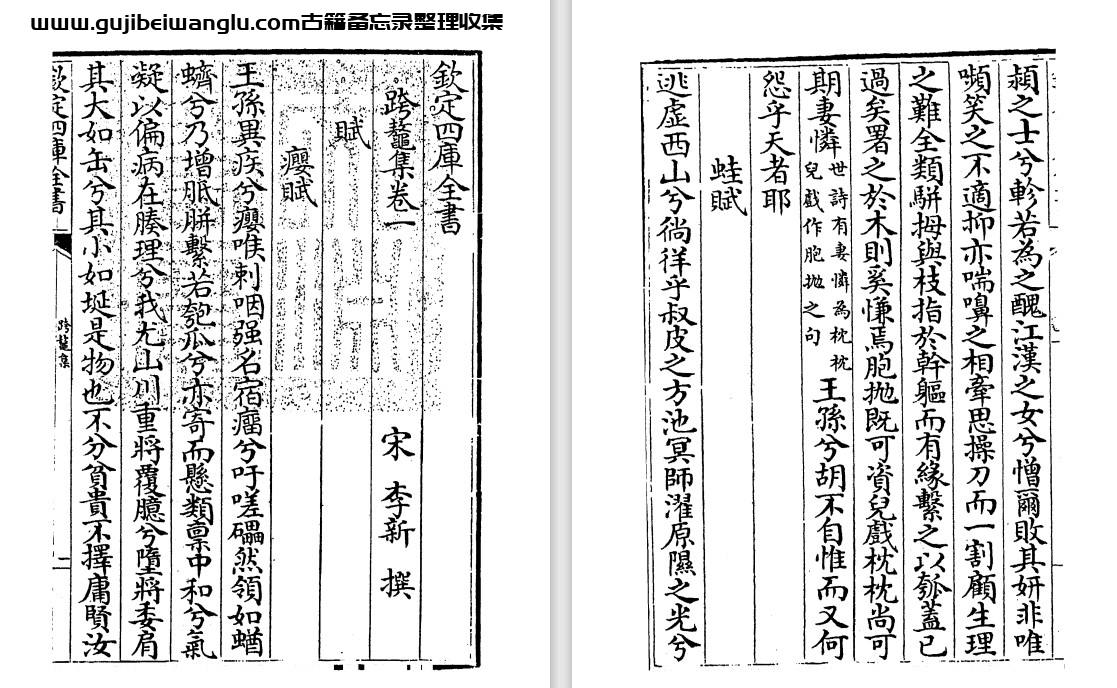 www.gujibeiwanglu.com古籍备忘录整理收集
欽定四庫全書
跨鼇集卷一
宋 李新 撰
賦
癭賦
王孫異疾兮癭喉刺咽强名宿瘤兮吁嗟礧然領如蝤
蠐兮乃增胝胼繫若匏瓜兮亦寄而懸類禀中和兮氣
凝以偏病在腠理兮我尤山川重將覆臆兮墮將委肩
其大如缶兮其小如埏是物也不分貧貴不擇庸賢汝
欽定四庫全書
跨鼇集
頴之士兮軫若為之醜江漢之女兮憎爾敗其妍非唯
嚬笑之不適抑亦喘嚊之相牽思操刀而一割顧生理
之難全類駢拇與枝指於幹軀而有緣繫之以瓠蓋已
過矣署之於木則奚慊焉胞抛既可資兒戲枕枕尚可
期妻憐世詩有妻憐為枕枕兒戲作胞抛之句王孫兮胡不自惟而又何
怨乎天者耶
蛙賦
逃虛西山兮徜徉乎叔皮之方池冥師濯原隰之光兮